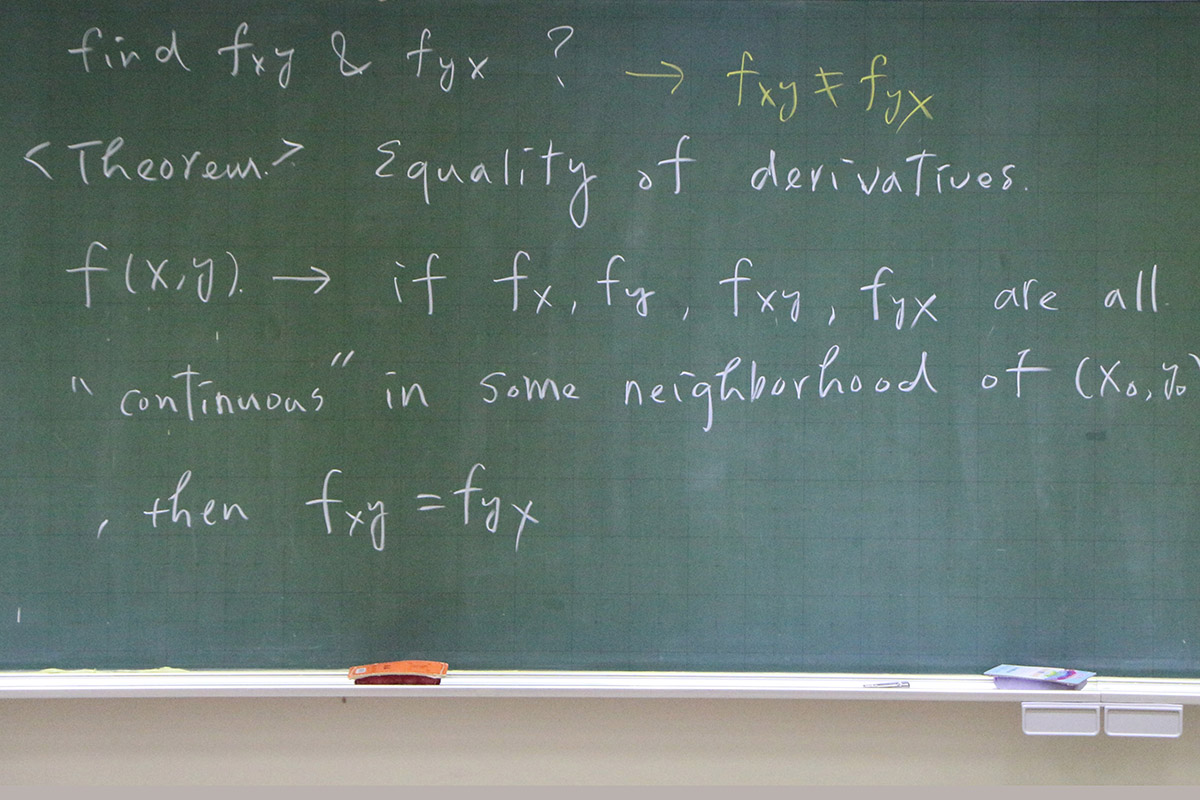 find fxy & fyx ? → fxy ≠ fyx
<Theorem.> Equality of derivatives.
f(x,y). → if fx, fy, fxy, fyx are all
"continuous" in some neighborhood of (x0,y0)
, then fxy = fyx